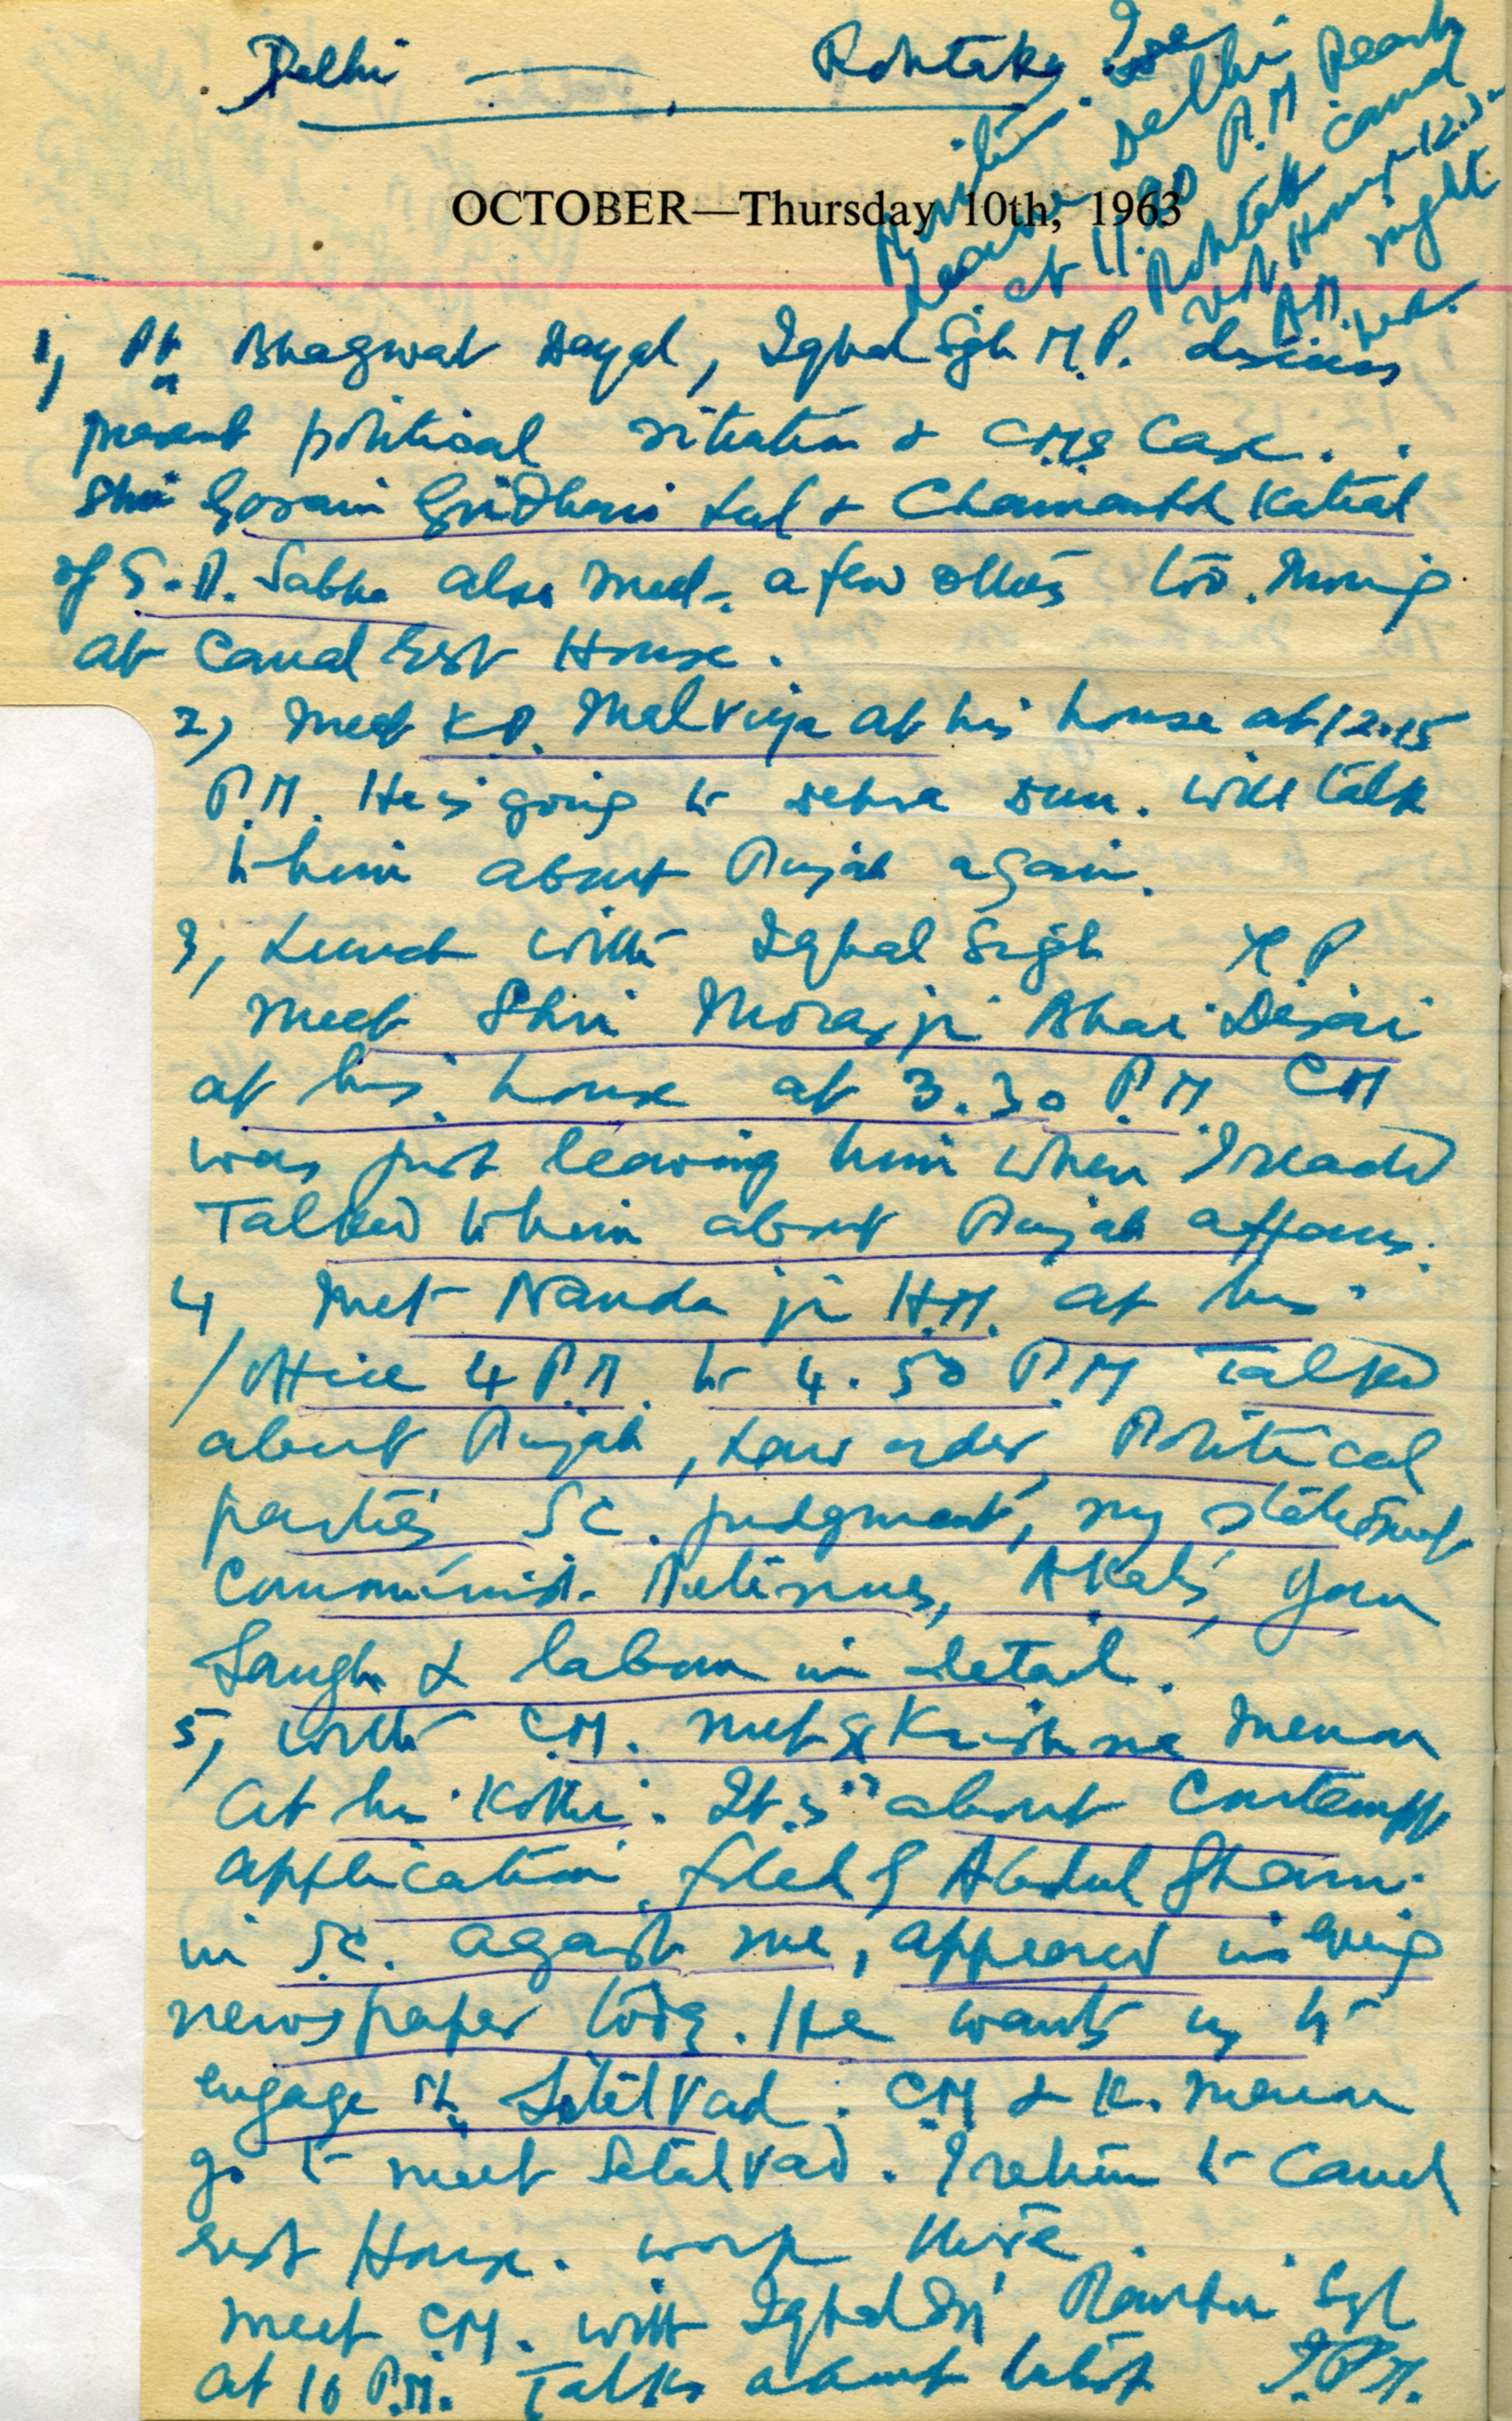 Delhi — Rohtak
Leave Delhi
at 11. P.M Reach
Rohtak Canal
rest House 12.30
A.M. night
OCTOBER—Thursday 10th, 1963
1, Pt Bhagwat Dayal, Iqbal Sgh M.P. discuss
present political situation & CMs Case.
Shri Gosain Girdhari Lal & Chamanlal Katial
of S.D. Sabha also meet. a few others too. Morning
at Canal Rest House.
2, Meet K.D. Malviya at his house at 12.15
P.M. He is going to Dehra Dun. Will talk
to him about Punjab again.
3, Lunch with Iqbal Singh M P
Meet Shri Morarji Bhai Desai
at his house at 3.30 P.M. CM
was just leaving him when I reached
Talked to him about Punjab affairs.
4 Met Nanda ji H.M. at his
Office 4 P.M. to 4.50 P.M Talked
about Punjab, Law order, Political
parties SC. judgment, my statement
Communist Activities, Akalis, Jan
Sangh & labour in detail.
5, With CM. met Krishna Menon
at his Kothi. It is about Contempt
application filed by Abdul Ghani
in S.C. against me, appeared in evening
newspaper today. He wants us to
engage Sh Setalvad. CM & K. Menon
go to meet Setalvad. I return to Canal
rest House. work there.
Meet CM. with Iqbal Sgh
at 10 P.M. Talks about latest